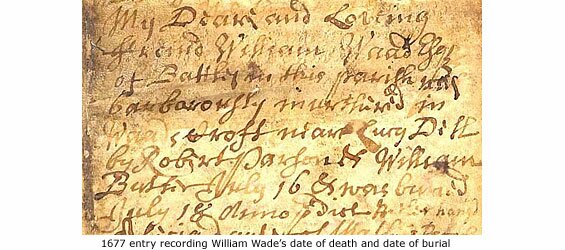 My Deare and Loving
ffreind William Waad Esqr
of Battly in this parish was
barborously murthured in
Waads Croft neare Lucy Dell
by Robert Parson & William
Butt July 16 & was buried
July 18 Anno p dict
1677 entry recording William Wade's date of death and date of burial